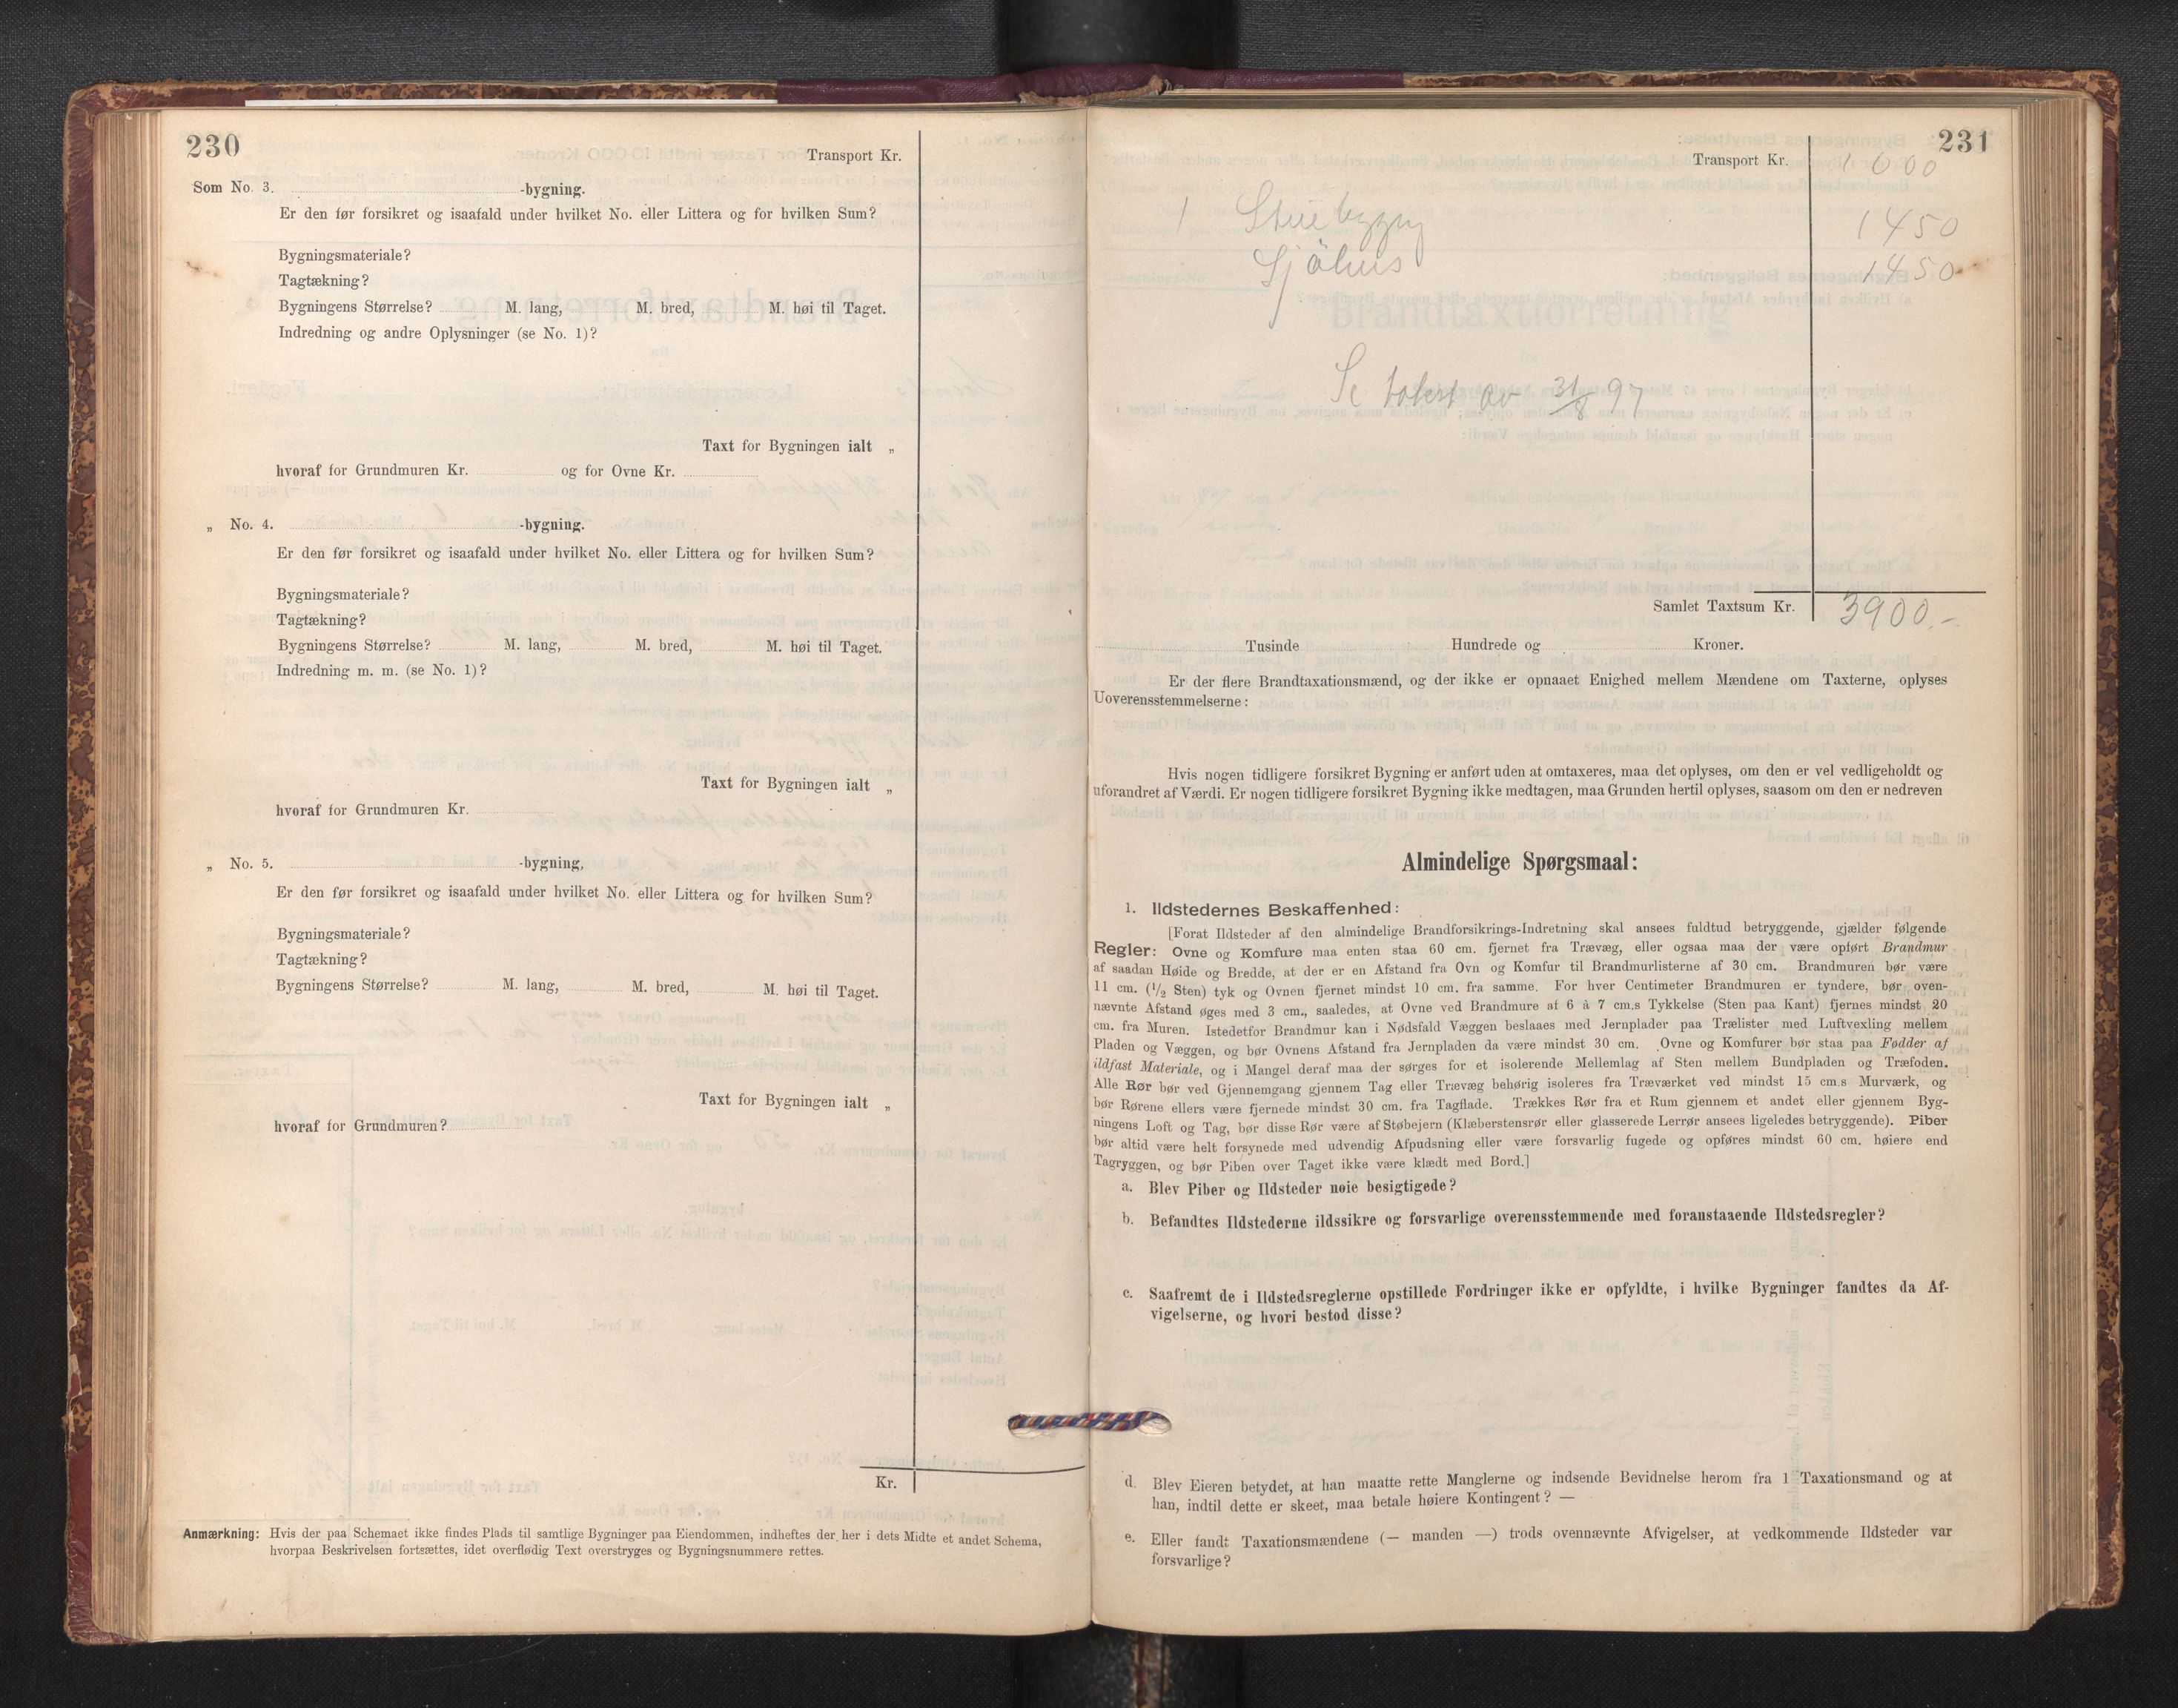 230
Transport Kr.
Som No. 3. -bygning.
Er den før forsikret og isaafald under hvilket No. eller Littera og for hvilken Sum?
Bygningsmateriale?
Tagtækning?
Bygningens Størrelse? M. lang, M. bred, M. høi til Taget.
Indredning og andre Oplysninger (se No. 1)?
Taxt for Bygningen ialt „
hvoraf for Grundmuren Kr. og for Ovne Kr.
„ No. 4. -bygning.
Er den før forsikret og isaafald under hvilket No. eller Littera og for hvilken Sum?
Bygningsmateriale?
Tagtækning?
Bygningens Størrelse? M. lang, M. bred, M. høi til Taget.
Indredning m. m. (se No. 1)?
Taxt for Bygningen ialt „
hvoraf for Grundmuren Kr.
„ No. 5. -bygning,
Er den før forsikret og isaafald under hvilket No. eller Littera og for hvilken Sum?
Bygningsmateriale?
Tagtækning?
Bygningens Størrelse? M. lang, M. bred, M. høi til Taget.
Taxt for Bygningen ialt „
hvoraf for Grundmuren?
Kr.
Anmærkning: Hvis der paa Schemaet ikke findes Plads til samtlige Bygninger paa Eiendommen, indheftes der her i dets Midte et andet Schema,
hvorpaa Beskrivelsen fortsættes, idet overflødig Text overstryges og Bygningsnummere rettes.
231
Transport Kr. 1000
1 Stuebygng 1450
Sjöhus 1450
Se takst av 31/8 97
Samlet Taxtsum Kr. 3900.-
Tusinde Hundrede og Kroner.
Er der flere Brandtaxationsmænd, og der ikke er opnaaet Enighed mellem Mændene om Taxterne, oplyses
Uoverensstemmelserne:
Hvis nogen tidligere forsikret Bygning er anført uden at omtaxeres, maa det oplyses, om den er vel vedligeholdt og
uforandret af Værdi. Er nogen tidligere forsikret Bygning ikke medtagen, maa Grunden hertil oplyses, saasom om den er nedreven
Almindelige Spørgsmaal:
1. Ildstedernes Beskaffenhed:
[Forat Ildsteder af den almindelige Brandforsikrings-Indretning skal ansees fuldtud betryggende, gjælder følgende
Regler: Ovne og Komfure maa enten staa 60 cm. fjernet fra Trævæg, eller ogsaa maa der være opført Brandmur
af saadan Høide og Bredde, at der er en Afstand fra Ovn og Komfur til Brandmurlisterne af 30 cm. Brandmuren bør være
11 cm. (1/2 Sten) tyk og Ovnen fjernet mindst 10 cm. fra samme. For hver Centimeter Brandmuren er tyndere, bør oven-
nævnte Afstand øges med 3 cm., saaledes, at Ovne ved Brandmure af 6 à 7 cm.s Tykkelse (Sten paa Kant) fjernes mindst 20
cm. fra Muren. Istedetfor Brandmur kan i Nødsfald Væggen beslaaes med Jernplader paa Trælister med Luftvexling mellem
Pladen og Væggen, og bør Ovnens Afstand fra Jernpladen da være mindst 30 cm. Ovne og Komfurer bør staa paa Fødder af
ildfast Materiale, og i Mangel deraf maa der sørges for et isolerende Mellemlag af Sten mellem Bundpladen og Træfoden.
Alle Rør bør ved Gjennemgang gjennem Tag eller Trævæg behørig isoleres fra Træværket ved mindst 15 cm.s Murværk, og
bør Rørene ellers være fjernede mindst 30 cm. fra Tagflade. Trækkes Rør fra et Rum gjennem et andet eller gjennem Byg-
ningens Loft og Tag, bør disse Rør være af Støbejern (Klæberstensrør eller glasserede Lerrør ansees ligeledes betryggende). Piber
bør altid være helt forsynede med udvendig Afpudsning eller være forsvarlig fugede og opføres mindst 60 cm. høiere end
Tagryggen, og bør Piben over Taget ikke være klædt med Bord.]
a. Blev Piber og Ildsteder nøie besigtigede?
b. Befandtes Ildstederne ildssikre og forsvarlige overensstemmende med foranstaaende Ildstedsregler?
c. Saafremt de i Ildstedsreglerne opstillede Fordringer ikke er opfyldte, i hvilke Bygninger fandtes da Af-
vigelserne, og hvori bestod disse?
d. Blev Eieren betydet, at han maatte rette Manglerne og indsende Bevidnelse herom fra 1 Taxationsmand og at
han, indtil dette er skeet, maa betale høiere Kontingent? —
e. Eller fandt Taxationsmændene (— manden —) trods ovennævnte Afvigelser, at vedkommende Ildsteder var
forsvarlige?